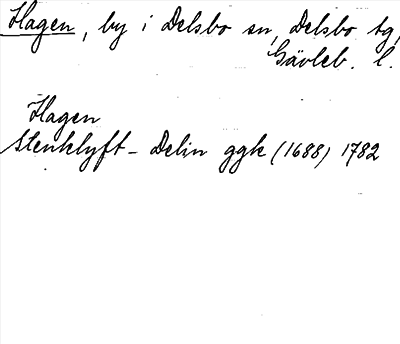 Hagen, by i Delsbo sn, Delsbo tg,
Gävleb. l.
Hagen
Stenklyft - Delin ggk (1688) 1782